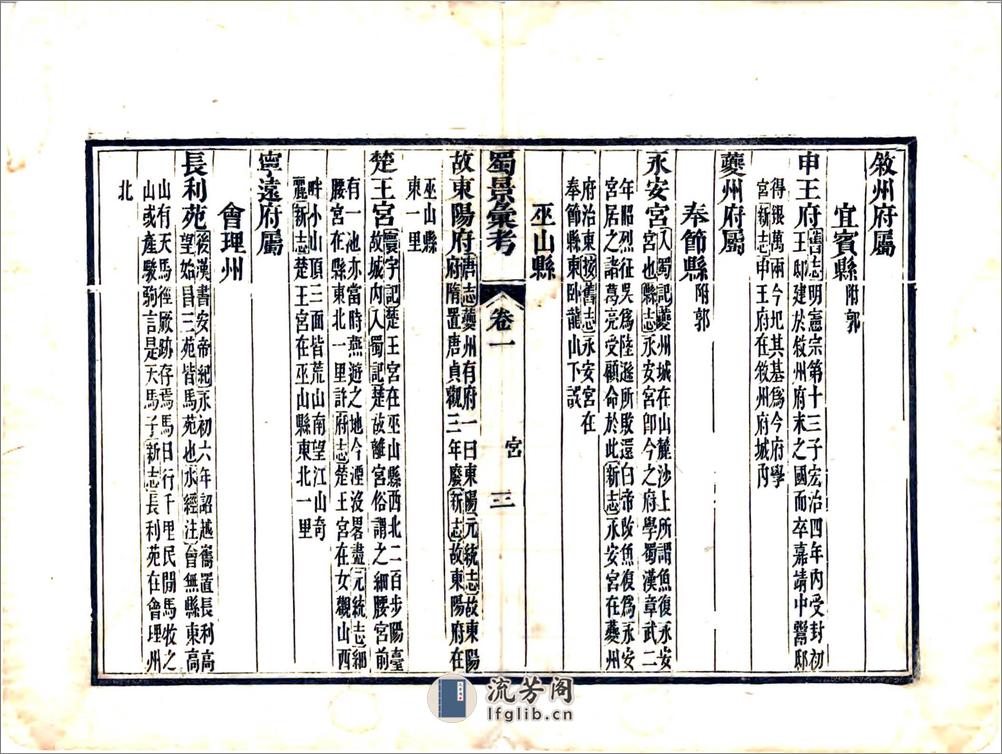 敘州府屬
宜賓縣附郭
申王府舊志明憲宗第十三子宏治四年內受封初
王邸建於敘州府未之國而卒嘉靖中鬻邸
得銀萬兩今圯其基為今府學
宮新志申王府在敘州府城內
夔州府屬
奉節縣附郭
永安宮入蜀記夔州城在山麓沙上所謂魚復永安
宮也縣志永安宮卽今之府學蜀漢章武二
年昭烈征吳為陸遜所敗還白帝改魚復為永安
宮居之諸葛亮受顧命於此新志永安宮在夔州
府治東按舊志永安宮在
奉節縣東臥龍山下誤
巫山縣
蜀景彙考
卷一
宮
三
故東陽府唐志夔州有府一曰東陽元統志故東陽
府隋置唐貞觀三年廢新志故東陽府在
巫山縣
東一里
楚王宮寰宇記楚王宮在巫山縣西北二百步陽臺
故城內入蜀記楚故離宮俗謂之細腰宮前
有一池亦當時燕遊之地今湮沒畧盡元統志細
腰宮在縣東北一里許府志楚王宮在女觀山西
畔小山頂三面皆荒山南望江山奇
麗新志楚王宮在巫山縣東北一里
寧遠府屬
會理州
長利苑後漢書安帝紀永初六年詔越巂置長利高
望始昌三苑皆馬苑也水經注會無縣東高
山有天馬徑厥跡存焉馬日行千里民間馬牧之
山或產駿駒言是天馬子新志長利苑在會理州
北
流芳閣
lfglib.cn